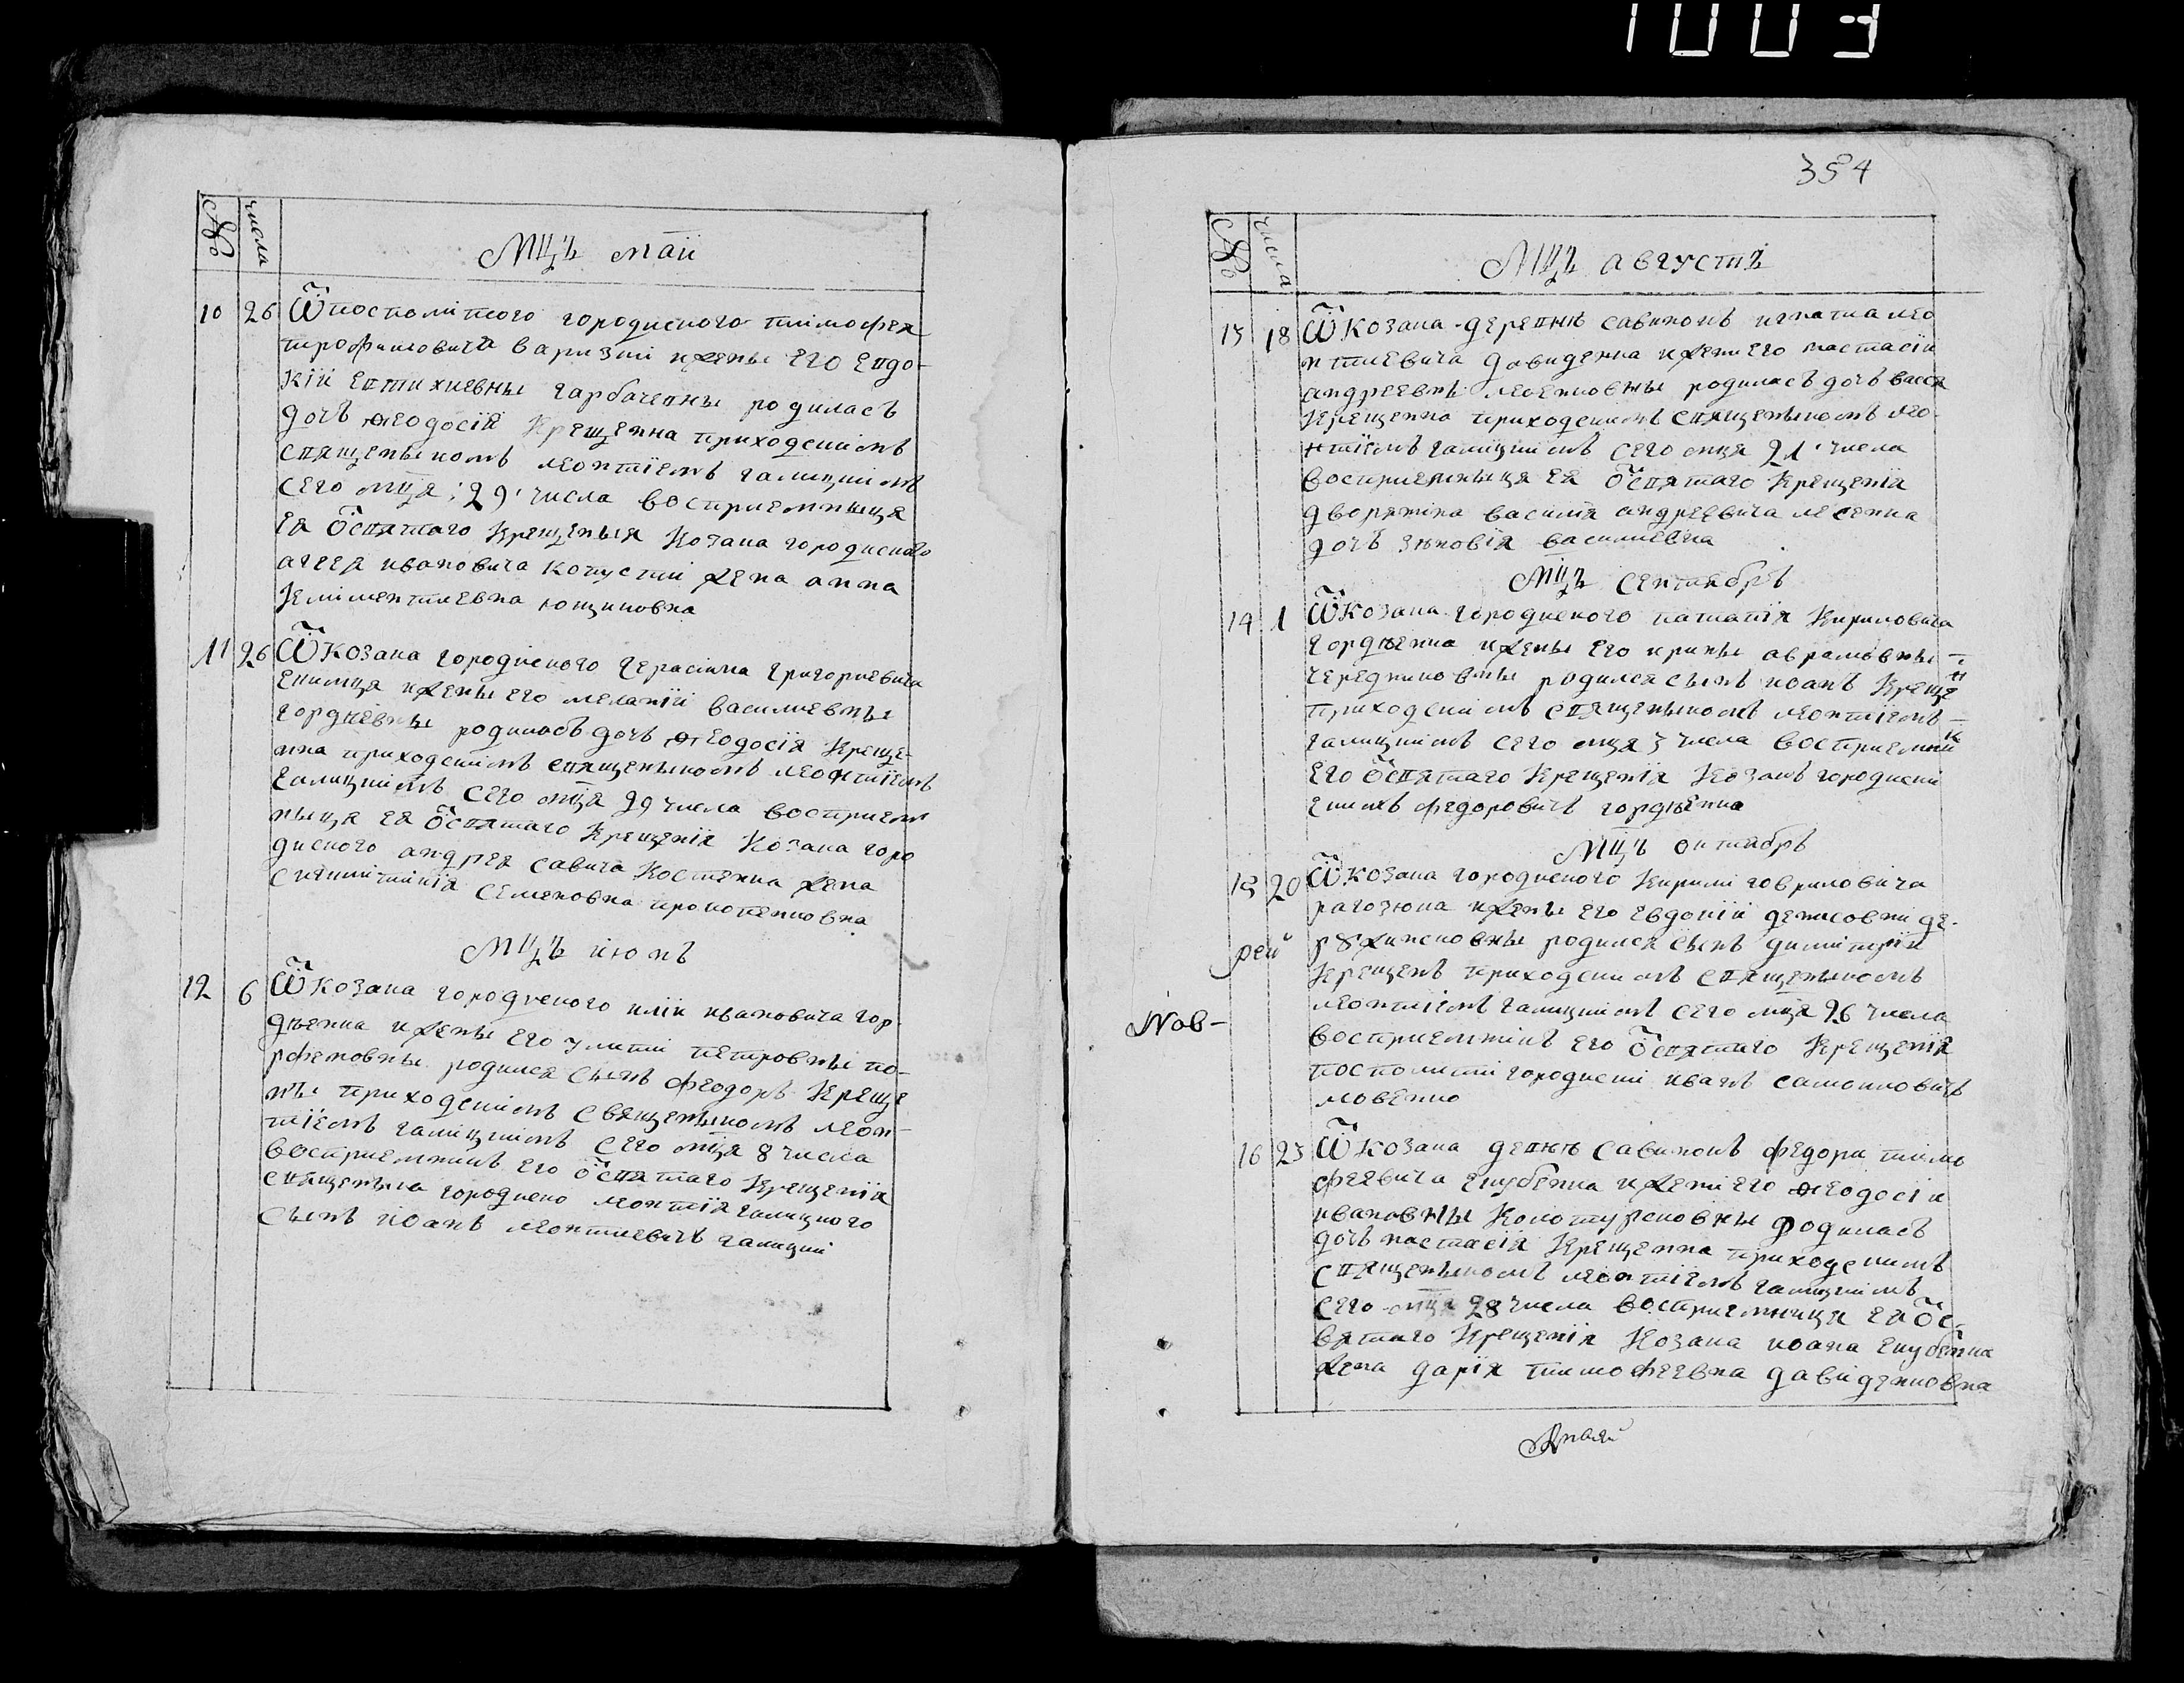 1003
№ числа
Мц҃ъ маїй
10 26 Ѿ посполитого городиского тимофея
трофимовича варизки и жены его евдо-
кїи евтихиевны гарбачевны родиласъ
дочъ ѳеодосїя крещенна приходскимъ
священыкомъ леонтїемъ галицкимъ
сего мц҃а 29 числа восприемныця
ея ѿ святаго крещеныя козака городиского
агеея ивановича капусти жена анна
климентиевна ющиковна
11 26 Ѿ козака городиского герасима григориевича
жены его меланїи василиевны
гордиевны родиласъ дочъ ѳеодосїя креще-
нна приходскимъ священыкомъ леонтїемъ
галицкимъ сего мц҃а 29 числа восприем
ныця ея ѿ святаго крещенїя козака горо
диского андрея савича костенка жена
семеновна прокопенковна
Мц҃ъ июнъ
12 6 Ѿ козака городиского илїи ивановича гор
дѣенка и жены его улити петровны по-
рфеновны родился сынъ феодоръ креще
нъ приходскимъ священыкомъ леон-
тїемъ галицкимъ сего мц҃а 8 числа
восприемникъ его ѿ святаго крещенїя
священыка городиско леонтїя галицкого
сынъ иоанъ леонтиевичъ галицкий
354
№ числа
Мц҃ъ августъ
13 18 Ѿ козака деревнѣ савинокъ игнатиа лео
нтиевича давиденка и жени его настасїи
андреевны лесенковны родиласъ дочъ васса
крещенна приходскимъ священыкомъ лео-
нтїемъ галицкимъ сего мц҃а 21 числа
восприемныця ея ѿ святаго крещенїя
дворянина василия андреевича лесенка
дочъ зѣновїя василиевна
Мц҃ъ сентябръ
14 1 Ѿ козака городиского патапїя кириловича
гордѣенка и жены его ирины аврамовны
чередниковны родился сынъ иоанъ крещен
приходскимъ священыкомъ леонтїемъ
галицкимъ сего мц҃а 3 числа восприемник
его ѿ святаго крещенїя козакъ городиски
екимъ федоровичъ гордѣенко
Мц҃ъ октябръ
15 20 Ѿ козака городиского кирили гавриловича
рагозюка и жены его евдокїи денисовни де-
рꙋжинсковны родился сынъ димитрїи
крещенъ приходскимъ священыкомъ
леонтїемъ галицкимъ сего мц҃а 26 числа
восприемникъ его ѿ святаго крещенїя
посполитий городиски иванъ самоиловичъ
мовенко
рей
Nов-
16 23 Ѿ козака девнѣ савинокъ федора тимо
феевича екубенка и жени его ѳеодосїи
ивановны колотурсковны родиласъ
дочъ настасїя крещенна приходскимъ
священыкомъ леонтїемъ галицкимъ
сего мц҃а 28 числа восприемница ея ѿ с-
вятаго крещенїя козака иоана екубенка
жена дарїя тимофеевна давиденковна